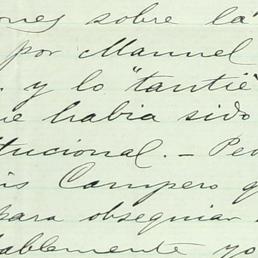 ones sobre la
por Manuel
. y lo "tantié
ue habia sido
itucional. – Pe
is Campero q
para obsequiar
ablemente yo